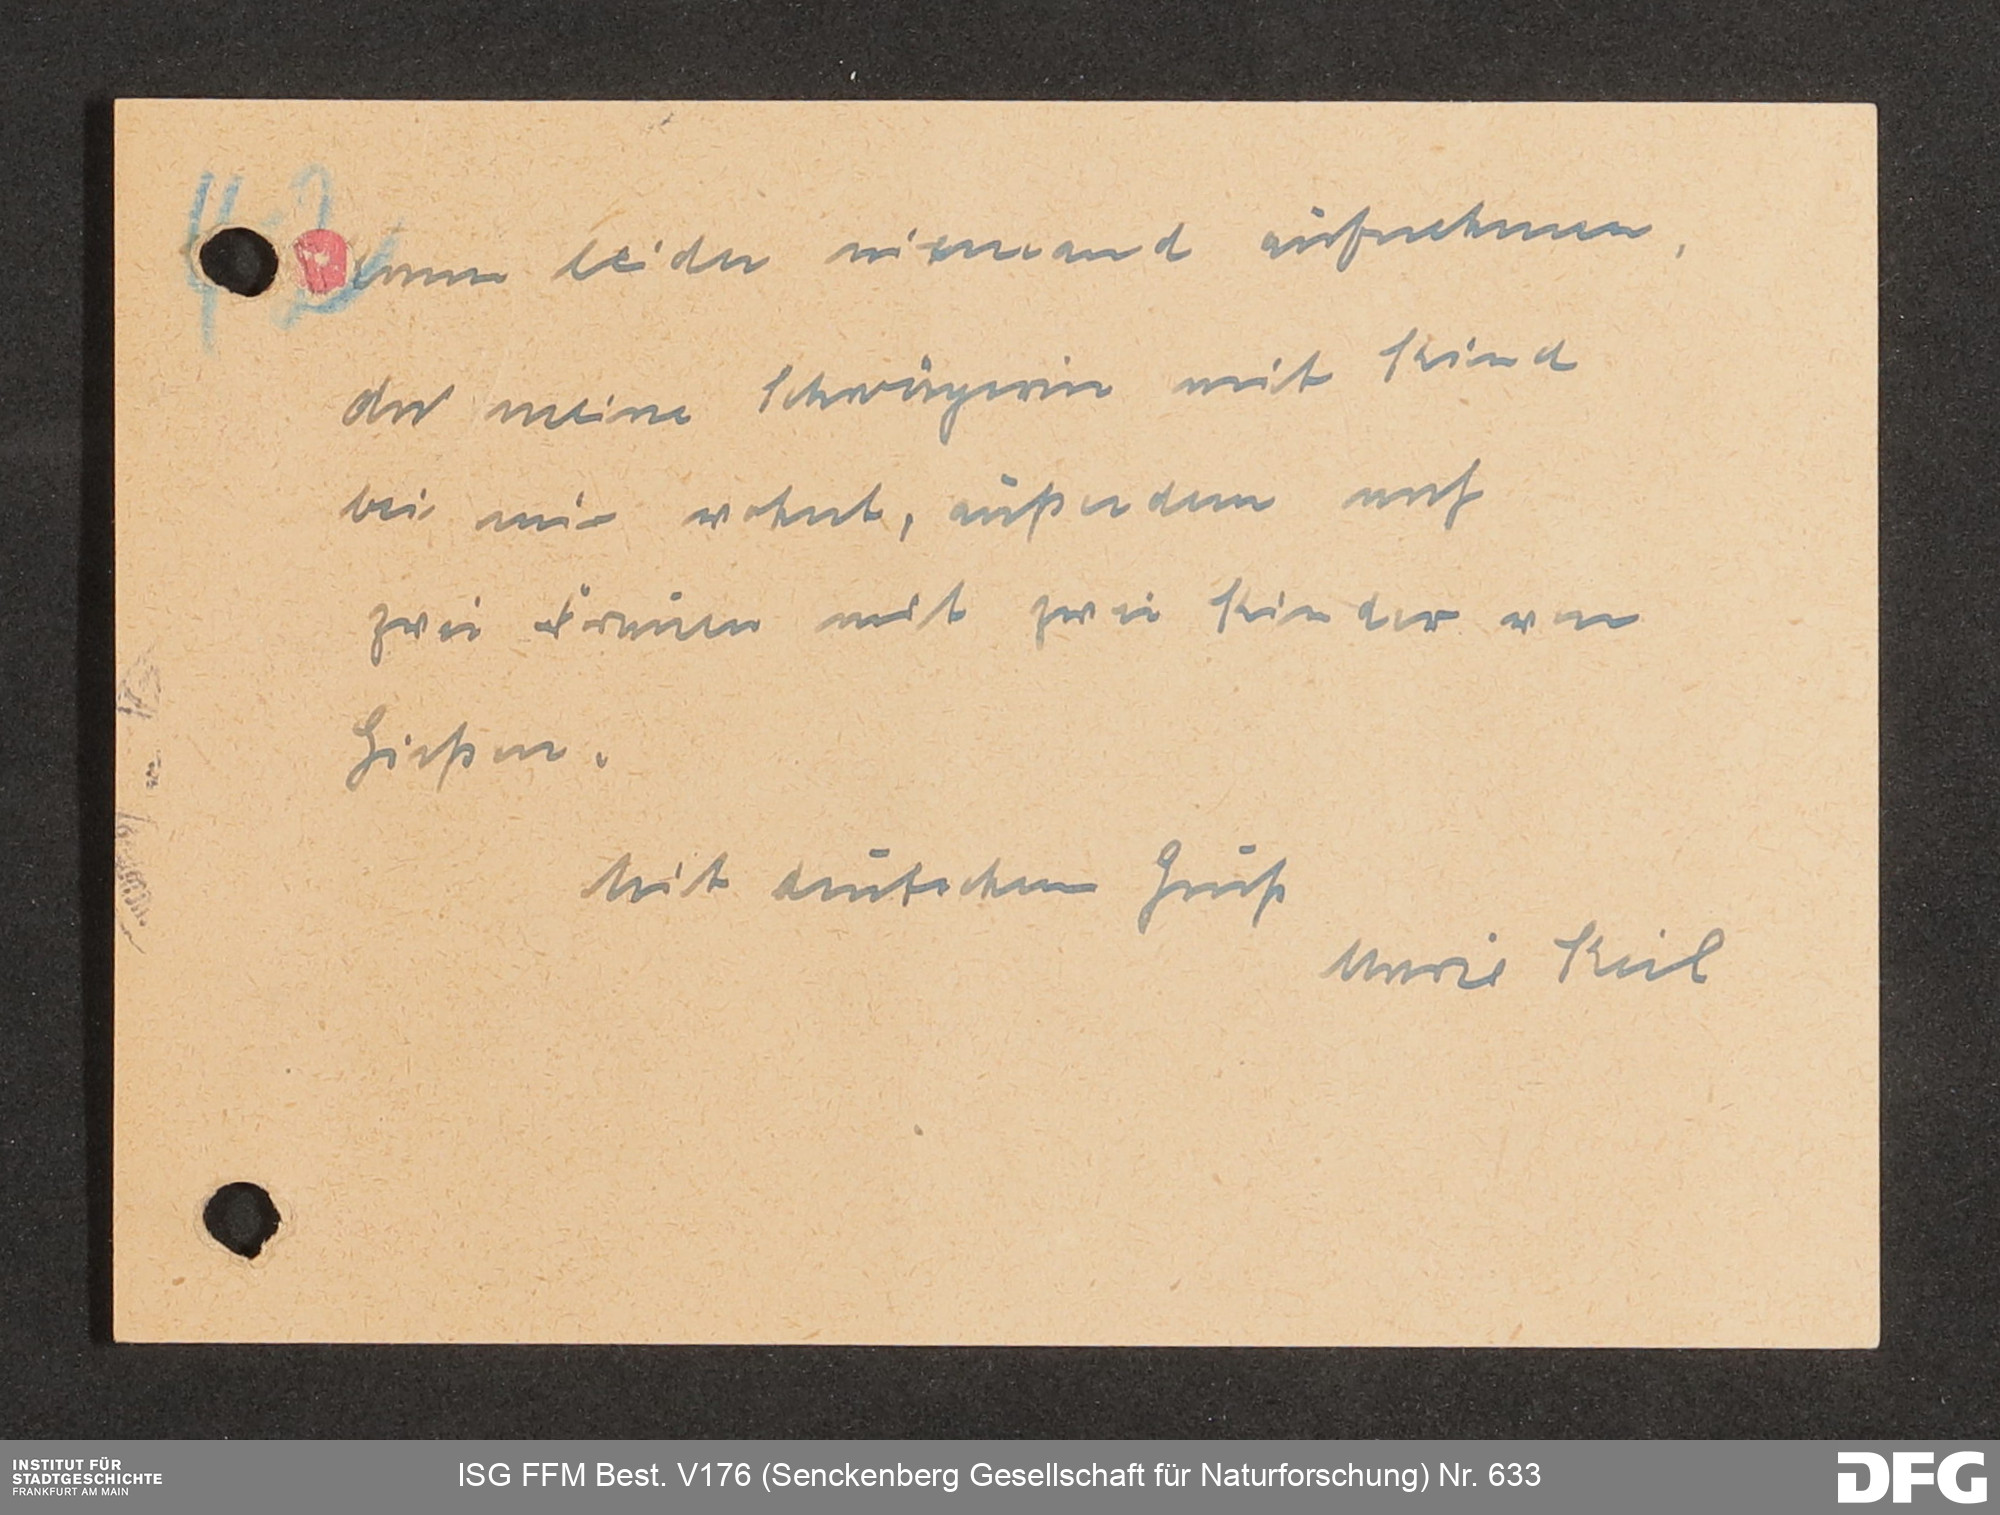 42
kann leider niemand aufnehmen,
da meine Schwägerin mit Kind
bei mir wohnt, außerdem noch
zwei Frauen mit zwei Kinder von
Gießen.
Mit deutschem Gruß
Marie Keil
INSTITUT FÜR
STADTGESCHICHTE
FRANKFURT AM MAIN
ISG FFM Best. V176 (Senckenberg Gesellschaft für Naturforschung) Nr. 633
DFG